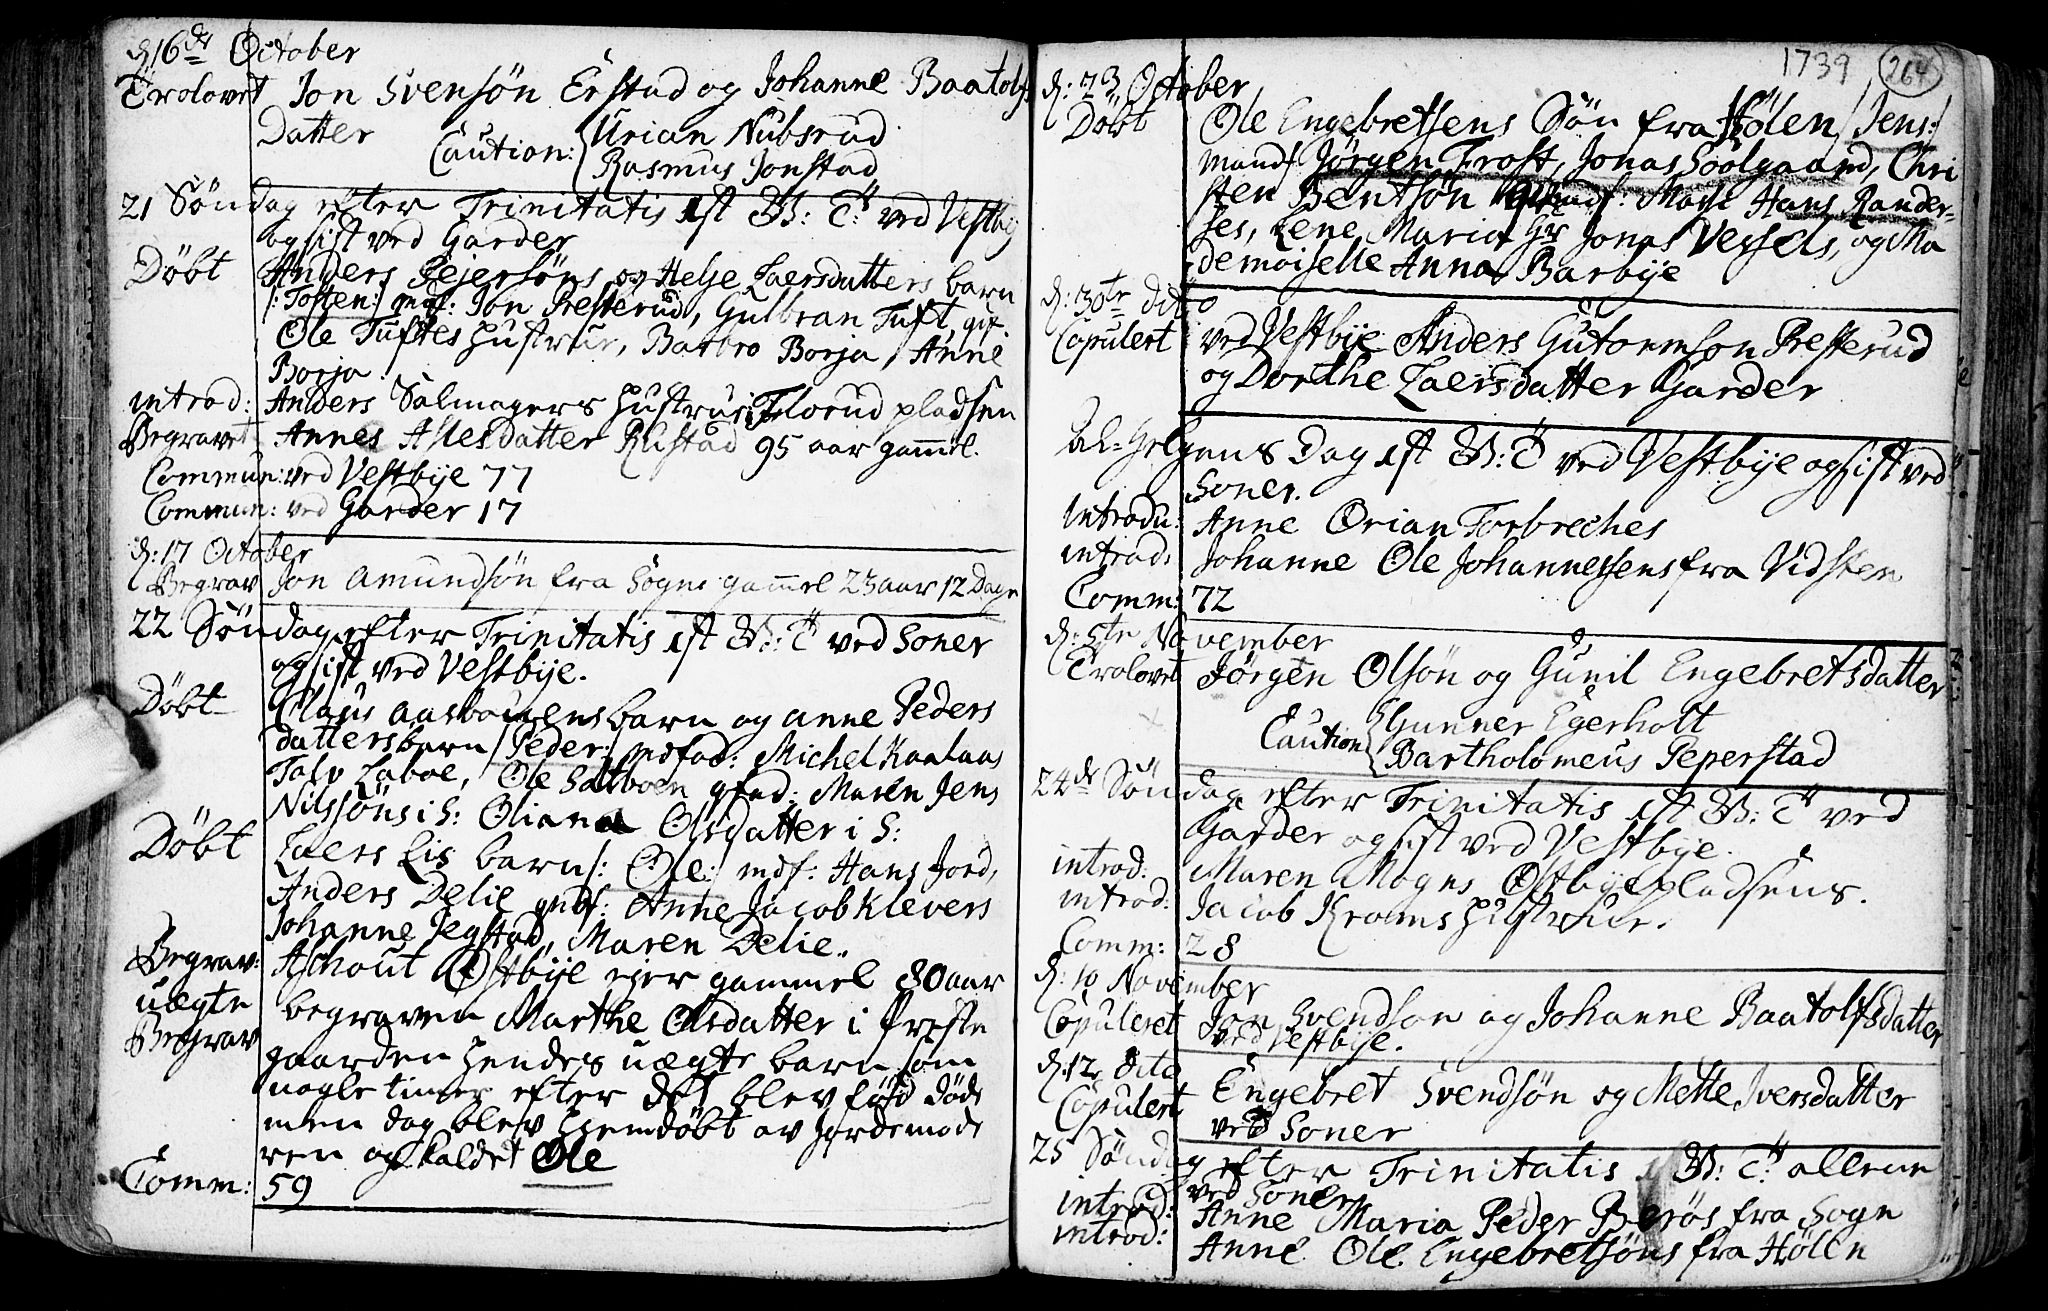 d 16de October
Trolovet Jon Svensøn Erstad og Johanne Baatolfs
Datter Caution: Urian Nubsrud
Rasmus Jonstad
21 Søndag efter Trinitatis 1st B: T: ved Vestby
og sist ved Garder
Døbt Anders Pejersøns og Helje Laersdatters barn
/: Tosten:/ mdf: Jon Presterud, Gulbran Tuft, qif.
Ole Tuftes Hustrue, Barbro Borja, Anne
Borja
introd: Anders Salmagers Hustrue Florud pladsen
Begravet Annes Aslesdatter Rustad 95 aar gam̄el.
Commun: ved Vestbye 77
Commun: ved Garder 17
d: 17 October
Begrav Jon Amundsøn fra Sogne gam̄el 23 aar 12 Dage
22 Søndag efter Trinitatis 1st B: T: ved Soner
og sist ved Vestbye.
Døbt Claus barn og Anne Peders
dattersbarn /Peder:/ mdfad: Michel Kaalaas
Talv Laboe, Ole Saltboen qfad: Maren Jens
Nilssøns i S: Oliana Olsdatter i S:
Døbt Laers Lis barn /: Ole:/ mdf: Hans Jord,
Anders Delie qndf: Anne Jacob Klevers
Johanne Jegstad, Maren Delie.
Begrav: Ashout Østbye ejer gammel 80 aar
uægte begraven Marthe Olsdatter i Preste
Begrav gaarden Hendes uægte barn som
nogle timer efter det blev fød døde
men dog blev Hjemdøbt av Jordemode
ren og kaldet Ole
Comm: 59
1739 264
d: 23 October
Døbt Ole Engebretsens Søn fra Hølen /Jens:/
mandf. Jørgen Frost, Jonas Soolgaard, Chri
sten Bentsøn qvindf: Mads Hans Rander-
ses, Lene Maria Hr Jonas Vessels, og Ma
demoiselle Anna Barbye
d: 30te dito
Copulert ved Vestbye Anders Gutormson Presterud
og Dorthe Laersdatter Garder
Al-Helgens Dag 1st B: T ved Vestbye og sist ved
Soner.
Introdu: Anne Ørian Torbreches
introd: Johanne Ole Johannessens fra Vidsten
Comm: 72
d: 5te November
Trolovet Jørgen Olsøn og Gunil Engebretsdatter
Caution Gunner Egerholt
Bartholomeus Peperstad
24de Søndag efter Trinitatis 1st B: T: ved
Garder og sist ved Vestbye.
introd: Maren Mogns Østbyepladsens.
introd: Jacob Kroms Hustrue.
Comm: 28
d: 10 November
Copuleret Jon Svendson og Johanne Baatolfsdatter
ved Vestbye.
d: 12 dito
Copulert Engebret Svendsøn og Mette Iversdatter
ved Soner
25 Søndag efter Trinitatis B: T: allene
ved Soner
introd: Anne Maria Peder Berøs fra Sogn
introd: Anne Ole Engebretsøns fra Hølen